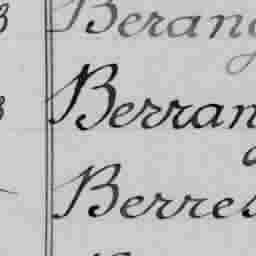 3 Berang
3 Berran
Berres